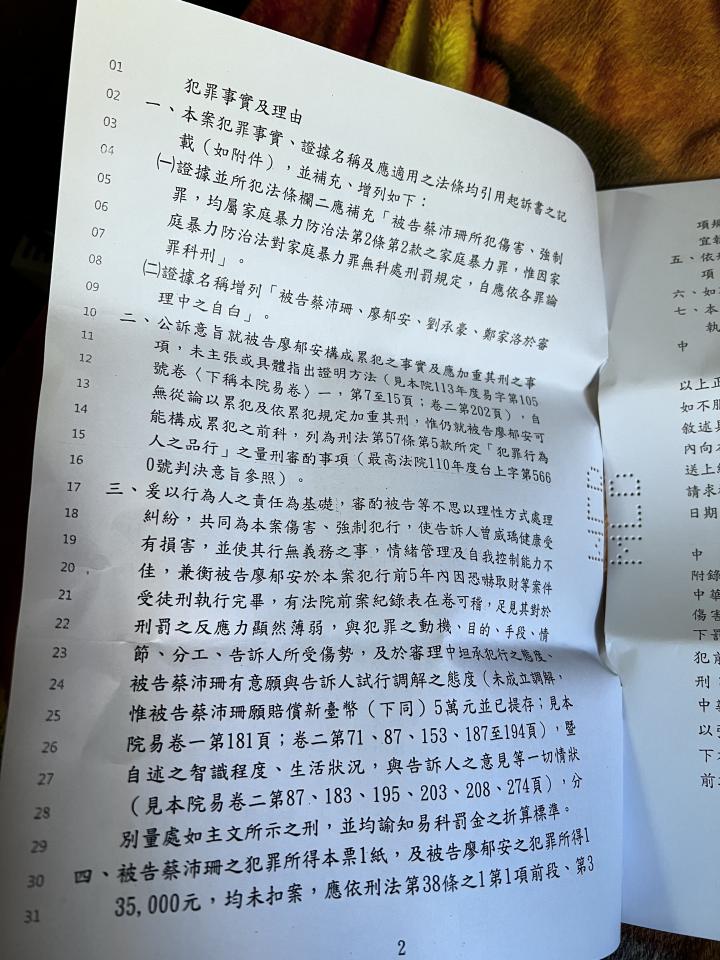 01
犯罪事實及理由
02
一、本案犯罪事實、證據名稱及應適用之法條均引用起訴書之記
03
載（如附件），並補充、增列如下：
04
㈠證據並所犯法條欄二應補充「被告蔡沛珊所犯傷害、強制
05
罪，均屬家庭暴力防治法第2條第2款之家庭暴力罪，惟因家
06
庭暴力防治法對家庭暴力罪無科處刑罰規定，自應依各罪論
07
罪科刑」。
08
㈡證據名稱增列「被告蔡沛珊、廖郁安、劉承豪、鄭家洛於審
09
理中之自白」。
10
二、公訴意旨就被告廖郁安構成累犯之事實及應加重其刑之事
11
項，未主張或具體指出證明方法（見本院113年度易字第105
12
號卷〈下稱本院易卷〉一，第7至15頁；卷二第202頁），自
13
無從論以累犯及依累犯規定加重其刑，惟仍就被告廖郁安可
14
能構成累犯之前科，列為刑法第57條第5款所定「犯罪行為
15
人之品行」之量刑審酌事項（最高法院110年度台上字第566
16
0號判決意旨參照）。
17
三、爰以行為人之責任為基礎，審酌被告等不思以理性方式處理
18
糾紛，共同為本案傷害、強制犯行，使告訴人曾威瑀健康受
19
有損害，並使其行無義務之事，情緒管理及自我控制能力不
20
佳，兼衡被告廖郁安於本案犯行前5年內因恐嚇取財等案件
21
受徒刑執行完畢，有法院前案紀錄表在卷可稽，足見其對於
22
刑罰之反應力顯然薄弱，與犯罪之動機、目的、手段、情
23
節、分工、告訴人所受傷勢，及於審理中坦承犯行之態度、
24
被告蔡沛珊有意願與告訴人試行調解之態度（未成立調解，
25
惟被告蔡沛珊願賠償新臺幣（下同）5萬元並已提存；見本
26
院易卷一第181頁；卷二第71、87、153、187至194頁），暨
27
自述之智識程度、生活狀況，與告訴人之意見等一切情狀
28
（見本院易卷二第87、183、195、203、208、274頁），分
29
別量處如主文所示之刑，並均諭知易科罰金之折算標準。
30
四、被告蔡沛珊之犯罪所得本票1紙，及被告廖郁安之犯罪所得1
31
35,000元，均未扣案，應依刑法第38條之1第1項前段、第3
2
項
宜
五、依
項
六、如
七、本
執
中
以上正
如不服
敘述具
內向本
送上級
請求
日期
中
附錄
中華
傷害
下罰
犯前
刑
中華
以
下
前